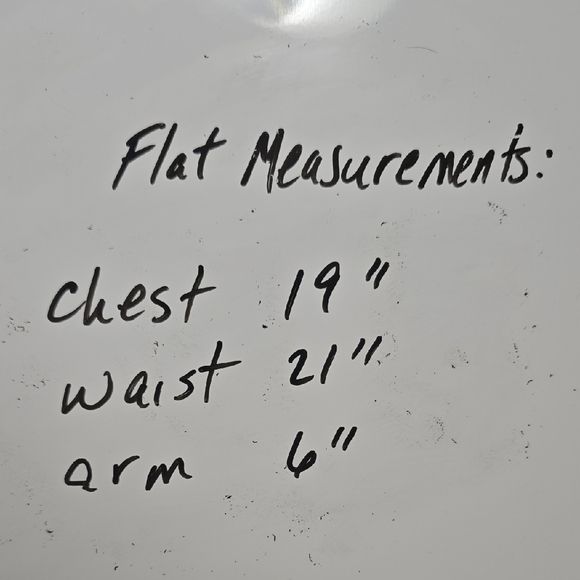 Flat Measurements:
chest 19"
waist 21"
arm 6"